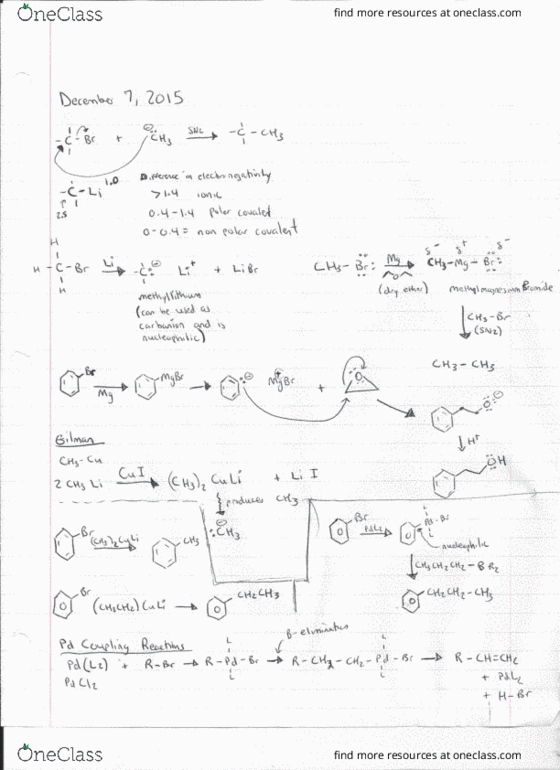 OneClass
find more resources at oneclass.com
December 7, 2015
-C-Br + ⊖:CH3 SN2 → -C-CH3
-C-Li 1.0
2.5
Difference in electronegativity
>1.4 ionic
0.4-1.4 polar covalent
0-0.4 = non polar covalent
H
H-C-Br Li → -C:⊖ Li+ + LiBr
H
methyllithium
(can be used as
carbanion and is
nucleophilic)
CH3-Br: Mg → CH3-Mg-Br:
δ- δ+ δ-
(dry ether)
methylmagnesium Bromide
CH3-Br
(SN2)
CH3-CH3
Br Mg → MgBr → :⊖ +MgBr + O
O:⊖
H+
OH
Gilman
CH3-Cu
2 CH3Li CuI → (CH3)2CuLi + LiI
produces CH3
⊖:CH3
Br (CH3)2CuLi → CH3
Br (CH3CH2)CuLi → CH2CH3
Br PdL2 → Pd-Br
L
L
nucleophilic
CH3CH2CH2-BR2
CH2CH2-CH3
Pd Coupling Reactions
β-elimination
Pd(L2) + R-Br → R-Pd-Br → R-CH2-CH2-Pd-Br → R-CH=CH2
L L
L L
PdCl2
+ PdL2
+ H-Br
OneClass
find more resources at oneclass.com